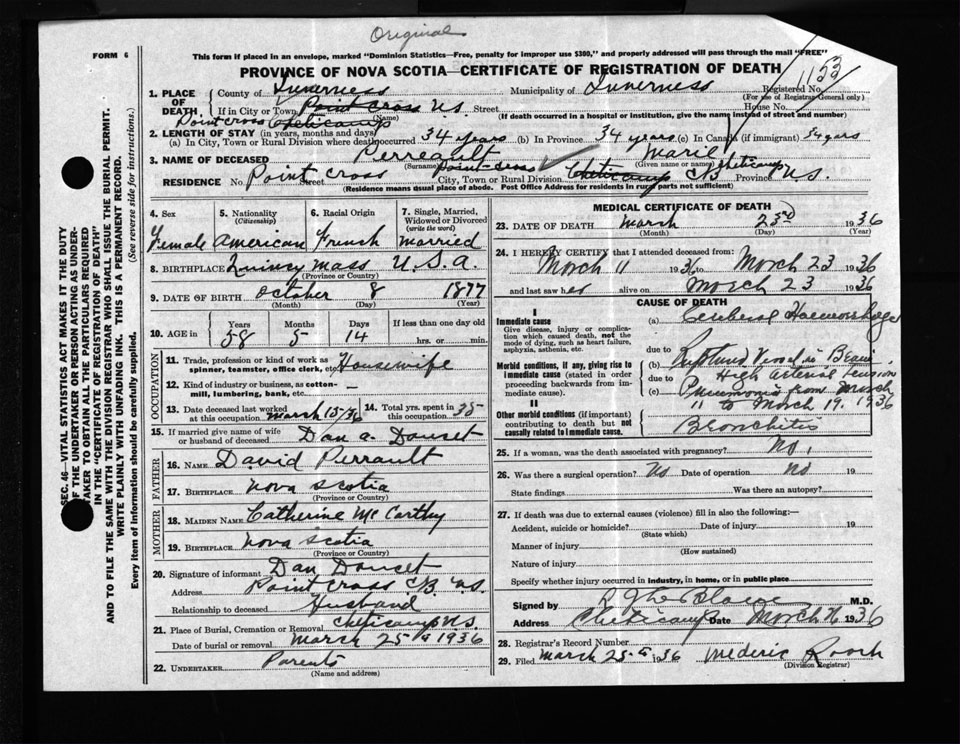 Original
FORM 6
This form if placed in an envelope, marked "Dominion Statistics—Free, penalty for improper use $300," and properly addressed will pass through the mail "FREE"
PROVINCE OF NOVA SCOTIA—CERTIFICATE OF REGISTRATION OF DEATH
1153
1. PLACE OF DEATH County of Inverness Municipality of Inverness Registered No.
(For use of Registrar General only)
If in City or Town Point Cross N.S. Street House No.
(Name) (If death occurred in a hospital or institution, give the name instead of street and number)
Point Cross Cheticamp
2. LENGTH OF STAY (in years, months and days)
(a) In City, Town or Rural Division where death occurred 34 years (b) In Province 34 years (c) In Canada (if immigrant) 34 years
3. NAME OF DECEASED Perreault Marie
(Surname) (Given name or names)
RESIDENCE No. Point Cross Street Point Cross City, Town or Rural Division Cheticamp C/B Cheticamp Province N.S.
(Residence means usual place of abode. Post Office Address for residents in rural parts not sufficient)
4. Sex Female
5. Nationality (Citizenship) American
6. Racial Origin French
7. Single, Married, Widowed or Divorced (write the word) married
8. BIRTHPLACE Quincy Mass U.S.A.
(Province or Country)
9. DATE OF BIRTH October 8 1877
(Month) (Day) (Year)
10. AGE in Years 58 Months 5 Days 14 If less than one day old hrs. or min.
OCCUPATION
11. Trade, profession or kind of work as spinner, teamster, office clerk, etc. Housewife
12. Kind of industry or business, as cotton-mill, lumbering, bank, etc. —
13. Date deceased last worked at this occupation March 15/36
14. Total yrs. spent in this occupation 35
15. If married give name of wife or husband of deceased Dan A. Doucet
FATHER
16. NAME David Perrault
17. BIRTHPLACE Nova Scotia
(Province or Country)
MOTHER
18. MAIDEN NAME Catherine McCarthy
19. BIRTHPLACE Nova Scotia
(Province or Country)
20. Signature of informant Dan Doucet
Address Point Cross C/B N.S.
Relationship to deceased Husband
21. Place of Burial, Cremation or Removal Cheticamp N.S.
Date of burial or removal March 25th 1936
22. UNDERTAKER Parents
(Name and address)
MEDICAL CERTIFICATE OF DEATH
23. DATE OF DEATH March 23rd 1936
(Month) (Day) (Year)
24. I HEREBY CERTIFY that I attended deceased from:
March 11 1936 to March 23 1936
and last saw her alive on March 23 1936
CAUSE OF DEATH
I
Immediate cause
Give disease, injury or complication which caused death, not the mode of dying, such as heart failure, asphyxia, asthenia, etc.
(a) Cerebral Haemorrhage
due to
Morbid conditions, if any, giving rise to immediate cause (stated in order proceeding backwards from immediate cause).
(b) Ruptured Vessel in Brain
due to High arterial tension
(c) Pneumonia from March 11 to March 19, 1936
II
Other morbid conditions (if important) contributing to death but not causally related to immediate cause.
Bronchitis
25. If a woman, was the death associated with pregnancy? No.
26. Was there a surgical operation? No Date of operation no 19
State findings Was there an autopsy?
27. If death was due to external causes (violence) fill in also the following:—
Accident, suicide or homicide? Date of injury 19
(State which)
Manner of injury
(How sustained)
Nature of injury
Specify whether injury occurred in industry, in home, or in public place
Signed by M.D.
Address Cheticamp Date March 1936
28. Registrar's Record Number
29. Filed March 25th 1936 Mederic
(Division Registrar)
SEC. 46—VITAL STATISTICS ACT MAKES IT THE DUTY OF THE UNDERTAKER OR PERSON ACTING AS UNDERTAKER TO OBTAIN ALL THE PARTICULARS REQUIRED IN THE "CERTIFICATE OF REGISTRATION OF DEATH" AND TO FILE THE SAME WITH THE DIVISION REGISTRAR WHO SHALL ISSUE THE BURIAL PERMIT.
WRITE PLAINLY WITH UNFADING INK. THIS IS A PERMANENT RECORD.
Every item of information should be carefully supplied. (See reverse side for instructions.)